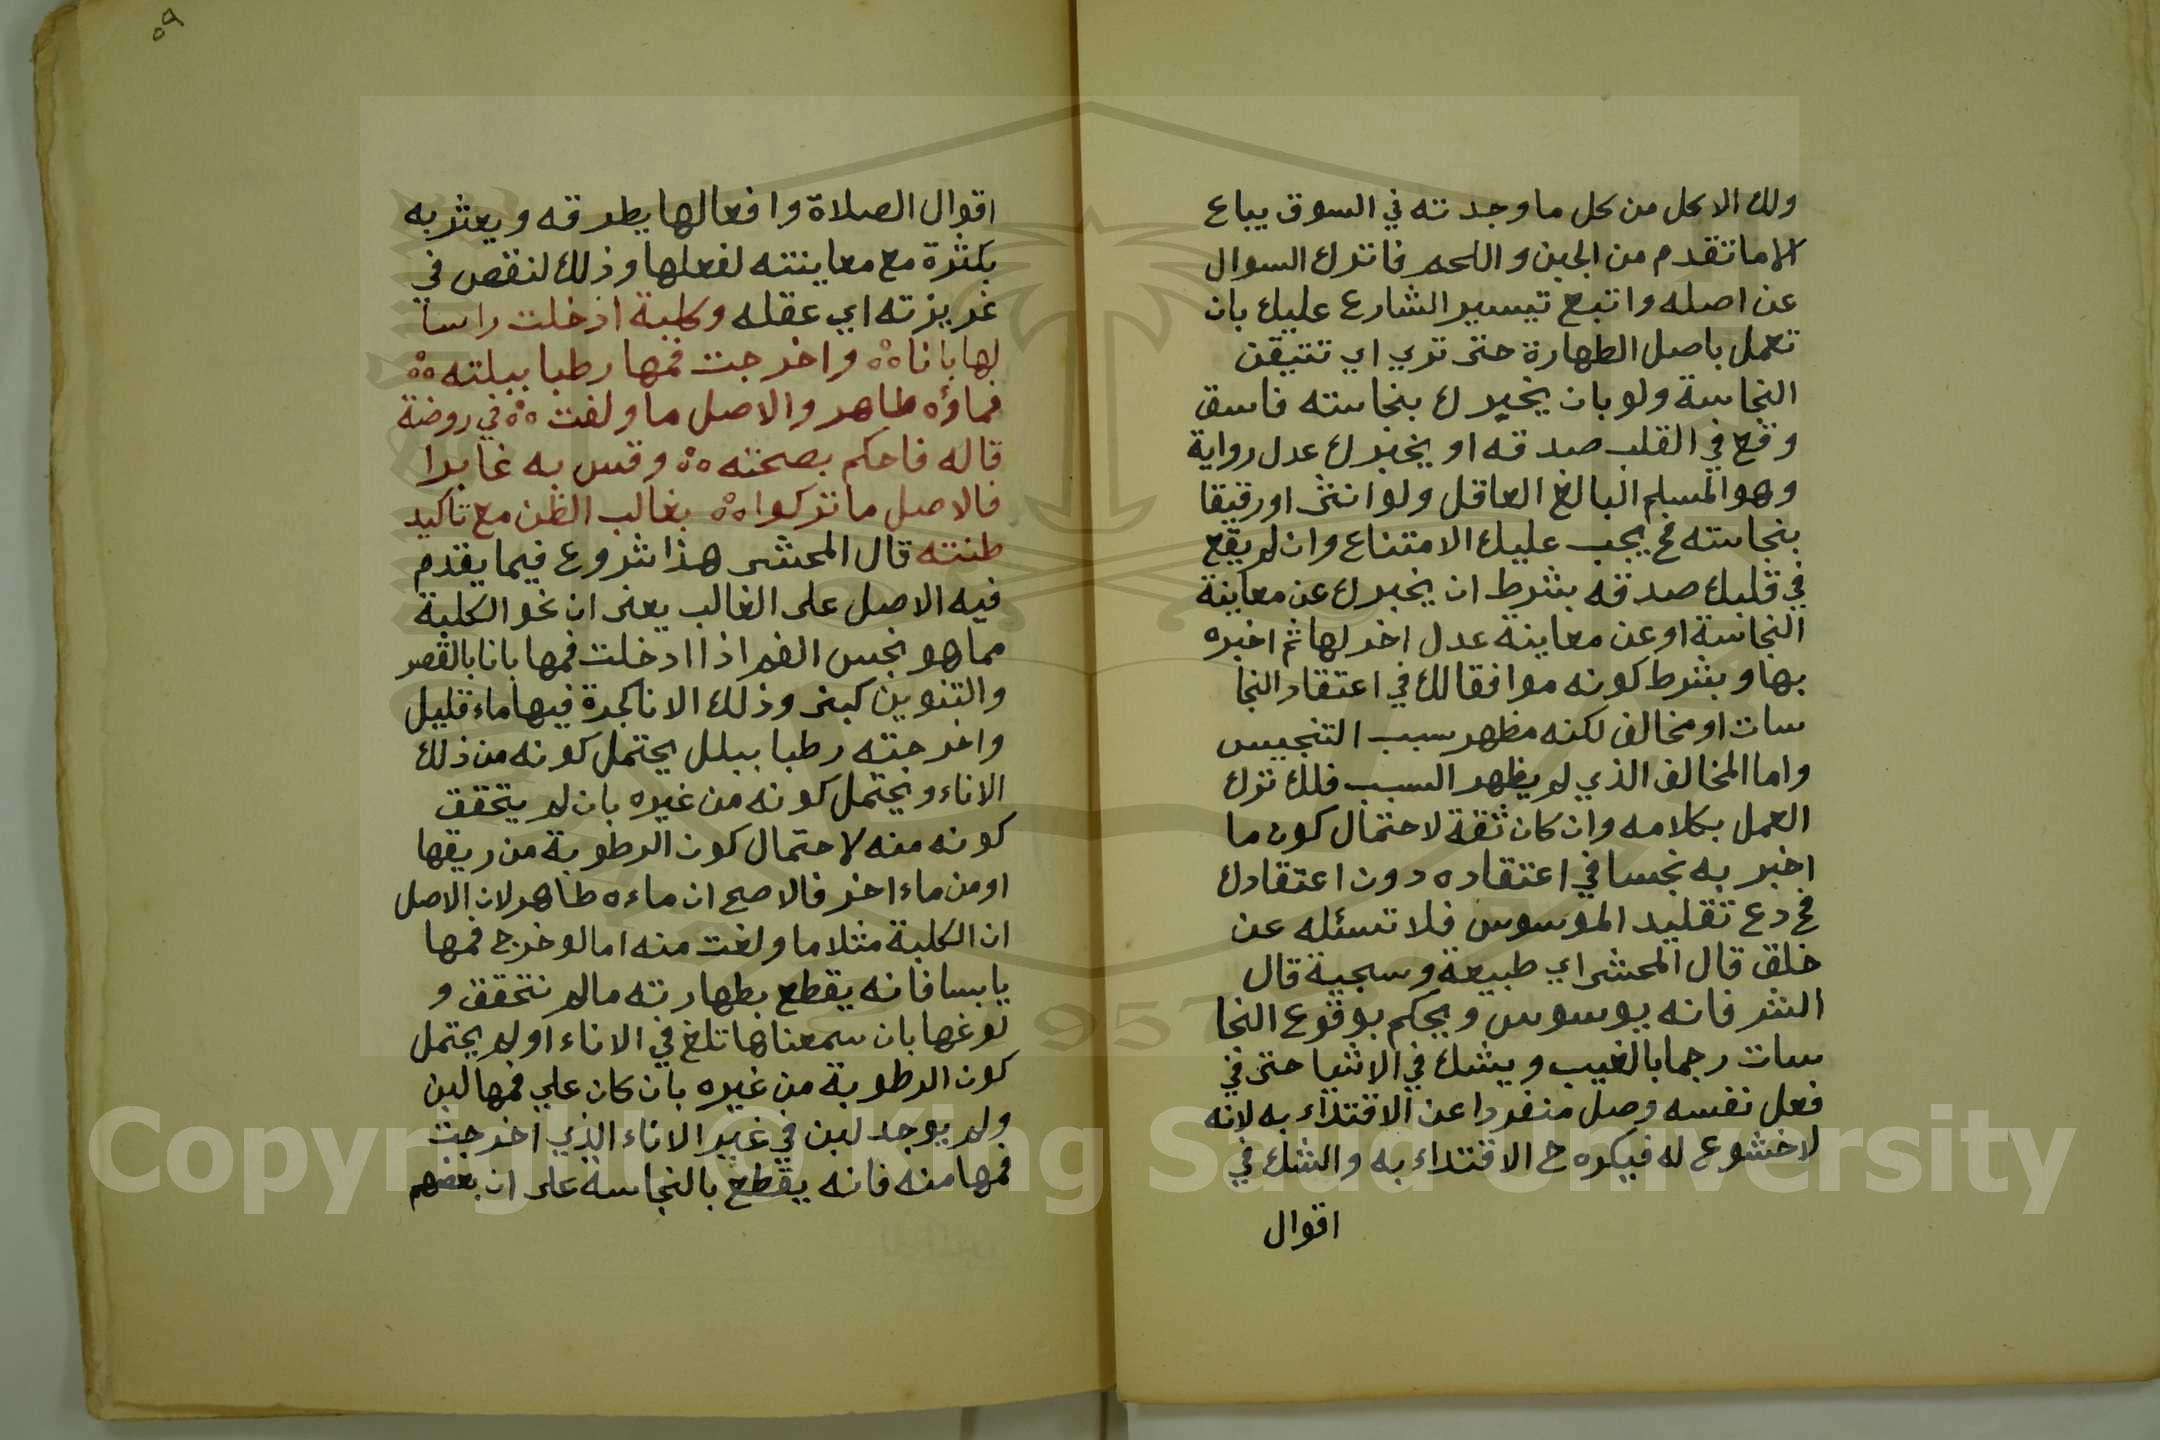 ولك الاكل من كل ما وجدته في السوق يباع
الاما تقدم من الجبن واللحم فاترك السوال
عن اصله واتبع تيسير الشارع عليك بان
تعمل باصل الطهارة حتى تري اي تتيقن
النجاسة ولو بان يخبرك بنجاسته فاسق
وقع في القلب صدقه او يخبرك عدل رواية
وهو المسلم البالغ العاقل ولو انثى او رقيقا
بنجاسته فح يجب عليك الامتناع وان لم يقع
في قلبك صدقه بشرط ان يخبرك عن معاينة
النجاسة او عن معاينة عدل اخر لها ثم اخبره
بها وبشرط كونه موافقا لك في اعتقاد النجا
سات او مخالف لكنه مظهر سبب التنجيس
واما المخالف الذي لم يظهر السبب فلك ترك
العمل بكلامه وان كان ثقة لاحتمال كون ما
اخبر به نجسا في اعتقاده دون اعتقادك
فح دع تقليد الموسوس فلا تسئله عن
خلق قال المحشى اي طبيعة وسجية قال
الشر فانه يوسوس ويحكم بوقوع النجا
سات رجما بالغيب ويشك في الاشيا حتى في
فعل نفسه وصل منفردا عن الاقتداء به لانه
لا خشوع له فيكره ح الاقتداء به والشك في
اقوال
٥٩
اقوال الصلاة وافعالها يطرقه ويعثر به
بكثرة مع معاينته لفعلها وذلك لنقص في
غريزته اي عقله وكلبة اذ خلت راسا
لها بانا ٥٥ واخرجت فمها رطبا ببلته ٥٥
فماؤه طاهر والاصل ما ولغت ٥٥ في روضة
قاله فاحكم بصحته ٥٥ وقس به غابرا
فالاصل ما تركوا ٥٥ بغالب الظن مع تاكيد
ظنته قال المحشى هذا شروع فيما يقدم
فيه الاصل على الغالب يعنى ان نحو الكلبة
مما هو نجس الفم اذا ادخلت فمها بانا بالقصر
والتنوين كبنى وذلك الانا كجرة فيها ماء قليل
واخرجته رطبا ببلل يحتمل كونه من ذلك
الاناء ويحتمل كونه من غيره بان لم يتحقق
كونه منه لاحتمال كون الرطوبة من ريقها
او من ماء اخر فالاصح ان ماءه طاهر لان الاصل
ان الكلبة مثلا ما ولغت منه اما لو خرج فمها
يابسا فانه يقطع بطهارته مالم نتحقق و
لوغها بان سمعناها تلغ في الاناء او لم يحتمل
كون الرطوبة من غيره بان كان علي فمها لبن
ولم يوجد لبن في غير الاناء الذي اخرجت
فمها منه فانه يقطع بالنجاسة على ان بعضهم
Copyright © King Saud University
957